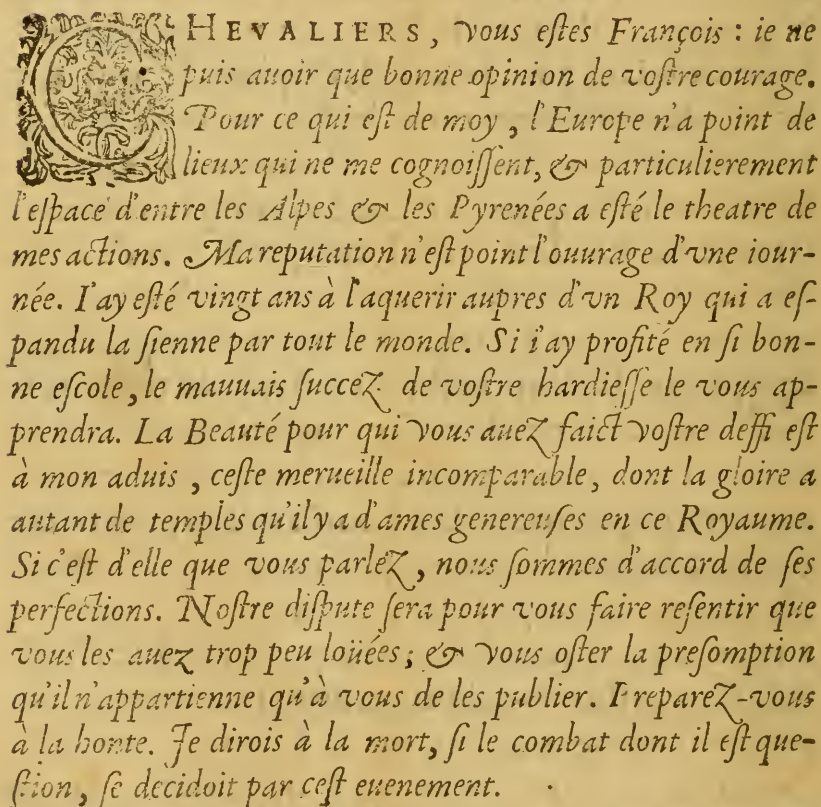 CHEVALIERS, vous eſtes François : ie ne
puis auoir que bonne opinion de voſtre courage.
Pour ce qui eſt de moy, l'Europe n'a point de
lieux qui ne me cognoiſſent, & particulierement
l'eſpace d'entre les Alpes & les Pyrenées a eſté le theatre de
mes actions. Ma reputation n'eſt point l'ouurage d'vne iour-
née. I'ay eſté vingt ans à l'aquerir aupres d'vn Roy qui a eſ-
pandu la ſienne par tout le monde. Si i'ay profité en ſi bon-
ne eſcole, le mauuais ſuccez de voſtre hardieſſe le vous ap-
prendra. La Beauté pour qui vous auez faict voſtre deffi eſt
à mon aduis, ceſte merueille incomparable, dont la gloire a
autant de temples qu'il y a d'ames genereuſes en ce Royaume.
Si c'eſt d'elle que vous parlez, nous ſommes d'accord de ſes
perfections. Noſtre diſpute ſera pour vous faire reſentir que
vous les auez trop peu loüées; & vous oſter la preſomption
qu'il n'appartienne qu'à vous de les publier. Preparez-vous
à la honte. Je dirois à la mort, ſi le combat dont il eſt que-
ſtion, ſe decidoit par ceſt euenement.